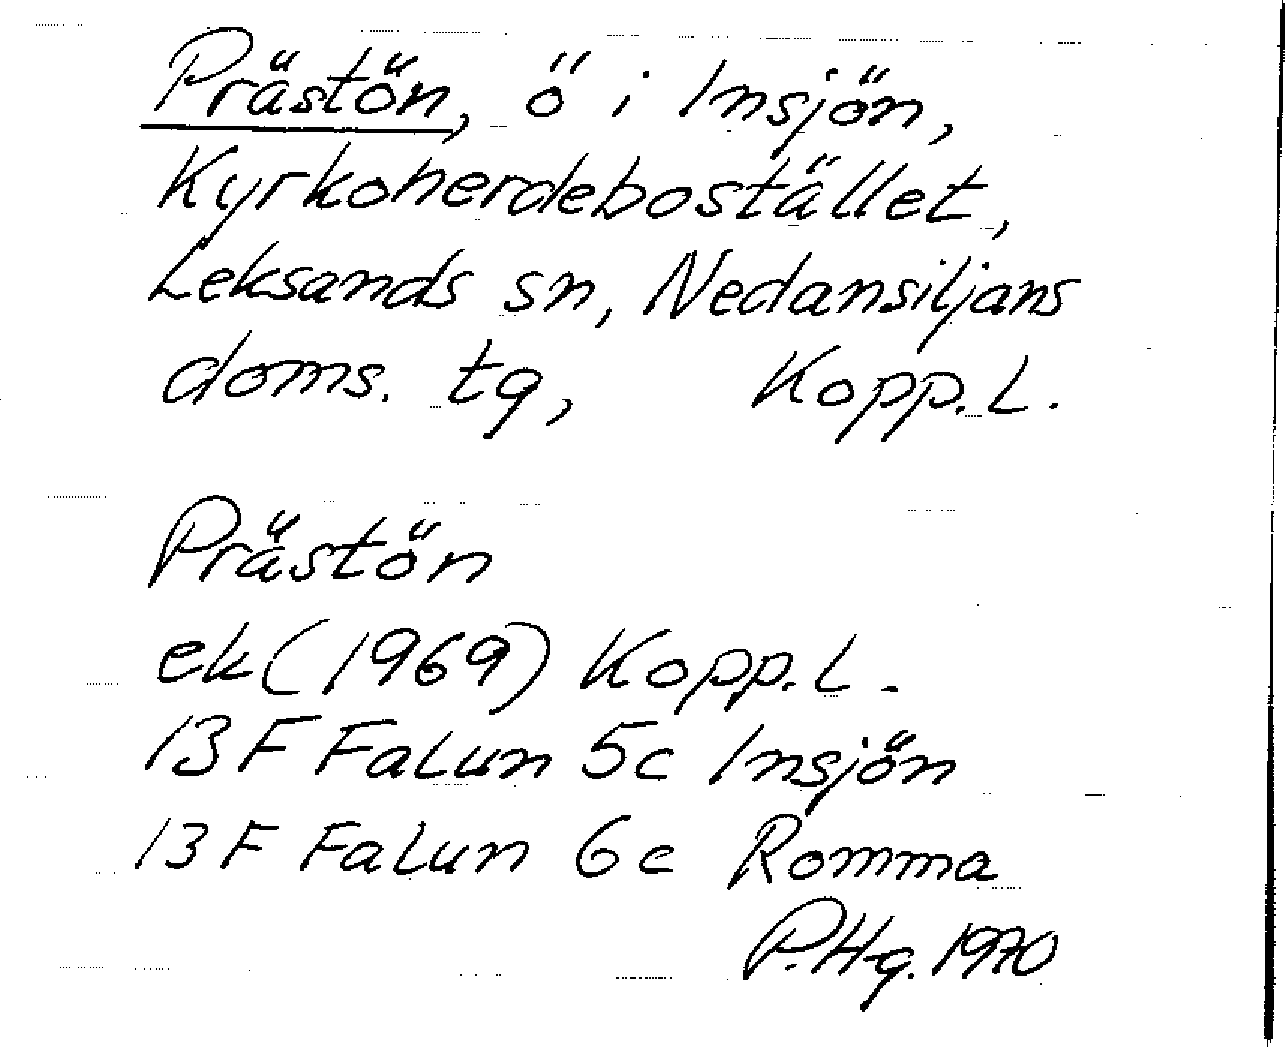 Prästön, ö i Insjön,
Kyrkoherdebostället,
Leksands sn, Nedansiljans
doms. tg, Kopp. L.
Prästön
ek (1969) Kopp. L.
13 F Falun 5c Insjön
13 F Falun 6c Romma
P. Hg. 1970